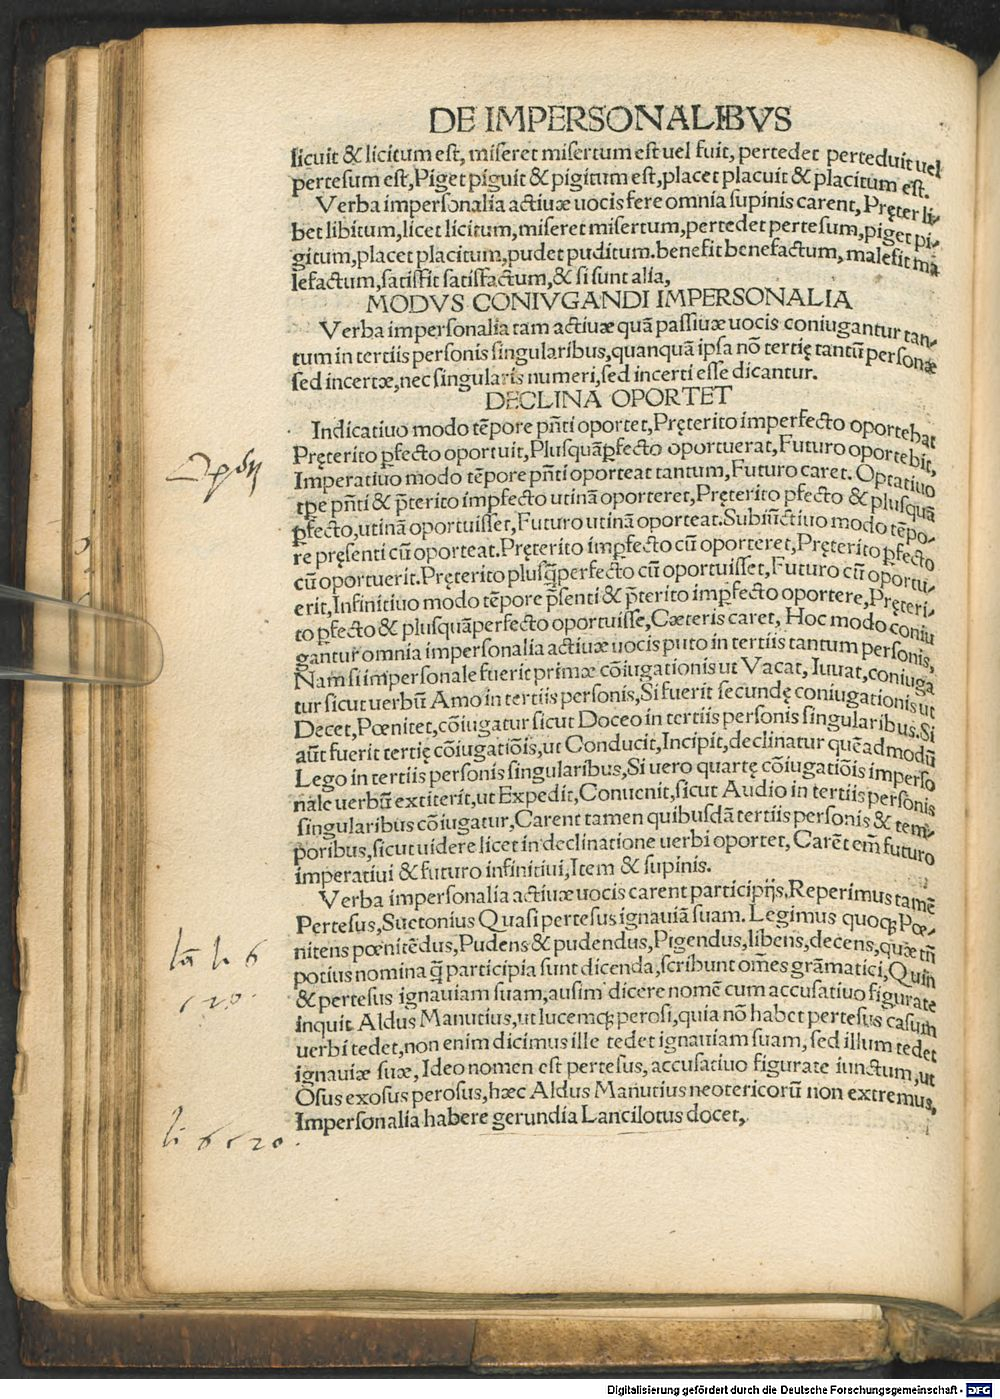 DE IMPERSONALIBVS
licuit & licitum est, miseret misertum est uel fuit, pertedet perteduit uel
pertesum est, Piget piguit & pigitum est, placet placuit & placitum est.
Verba impersonalia actiuæ uocis fere omnia supinis carent, Pręter li-
bet libitum, licet licitum, miseret misertum, pertedet pertesum, piget pi-
gitum, placet placitum, pudet puditum. benefit benefactum, malefit ma
lefactum, satisfit satisfactum, & si sunt alia,
MODVS CONIVGANDI IMPERSONALIA
Verba impersonalia tam actiuæ quã passiuæ uocis coniugantur tan-
tum in tertiis personis singularibus, quanquã ipsa nõ tertię tantũ personæ
sed incertæ, nec singularis numeri, sed incerti esse dicantur.
DECLINA OPORTET
Indicatiuo modo tẽpore pñti oportet, Pręterito imperfecto oportebat
Pręterito ꝑfecto oportuit, Plusquãꝑfecto oportuerat, Futuro oportebit,
Imperatiuo modo tẽpore pñti oporteat tantum, Futuro caret. Optatiuo
tpe pñti & p̃terito impfecto utinã oporteret, Pręterito pfecto & plusquã
ꝑfecto, utinã oportuisset, Futuro utinã oporteat. Subiũctiuo modo tẽpo-
re pręsenti cũ oporteat. Pręterito imꝑfecto cũ oporteret, Pręterito ꝑfecto
cũ oportuerit. Pręterito plusq̃perfecto cũ oportuisset, Futuro cũ oportu-
erit, Infinitiuo modo tẽpore p̃senti & p̃terito imꝑfecto oportere, Pręteri-
to ꝑfecto & plusquãperfecto oportuisse, Cæteris caret, Hoc modo coniu
gantur omnia impersonalia actiuæ uocis puto in tertiis tantum personis,
Nam si impersonale fuerit primæ cõiugationis ut Vacat, Iuuat, coniuga
tur sicut uerbũ Amo in tertiis personis, Si fuerit secundę coniugationis ut
Decet, Pœnitet, cõiugatur sicut Doceo in tertiis personis singularibus. Si
aũt fuerit tertię cõiugatiõis, ut Conducit, Incipit, declinatur quẽadmodũ
Lego in tertiis personis singularibus, Si uero quartę cõiugatiõis imperso
nale uerbũ extiterit, ut Expedit, Conuenit, sicut Audio in tertiis personis
singularibus cõiugatur, Carent tamen quibusdã tertiis personis & tem-
poribus, sicut uidere licet in declinatione uerbi oportet, Carẽt em̃ futuro
imperatiui & futuro infinitiui, Item & supinis.
Verba impersonalia actiuæ uocis carent participijs, Reperimus tamẽ
Pertesus, Suetonius Quasi pertesus ignauiã suam. Legimus quoqꝫ Pœ-
nitens pœnitẽdus, Pudens & pudendus, Pigendus, libens, decens, quæ tñ
potius nomina q̃ participia sunt dicenda, scribunt om̃es grãmatici, Quin
& pertesus ignauiam suam, ausim dicere nomẽ cum accusatiuo figurate
inquit Aldus Manutius, ut lucemqꝫ perosi, quia nõ habet pertesus casum
uerbi tedet, non enim dicimus ille tedet ignauiam suam, sed illum tedet
ignauiæ suæ, Ideo nomen est pertesus, accusatiuo figurate iunctum, ut
Osus exosus perosus, hæc Aldus Manutius neotericorũ non extremus,
Impersonalia habere gerundia Lancilotus docet,
li 6 c 20.
Digitalisierung gefördert durch die Deutsche Forschungsgemeinschaft - DFG